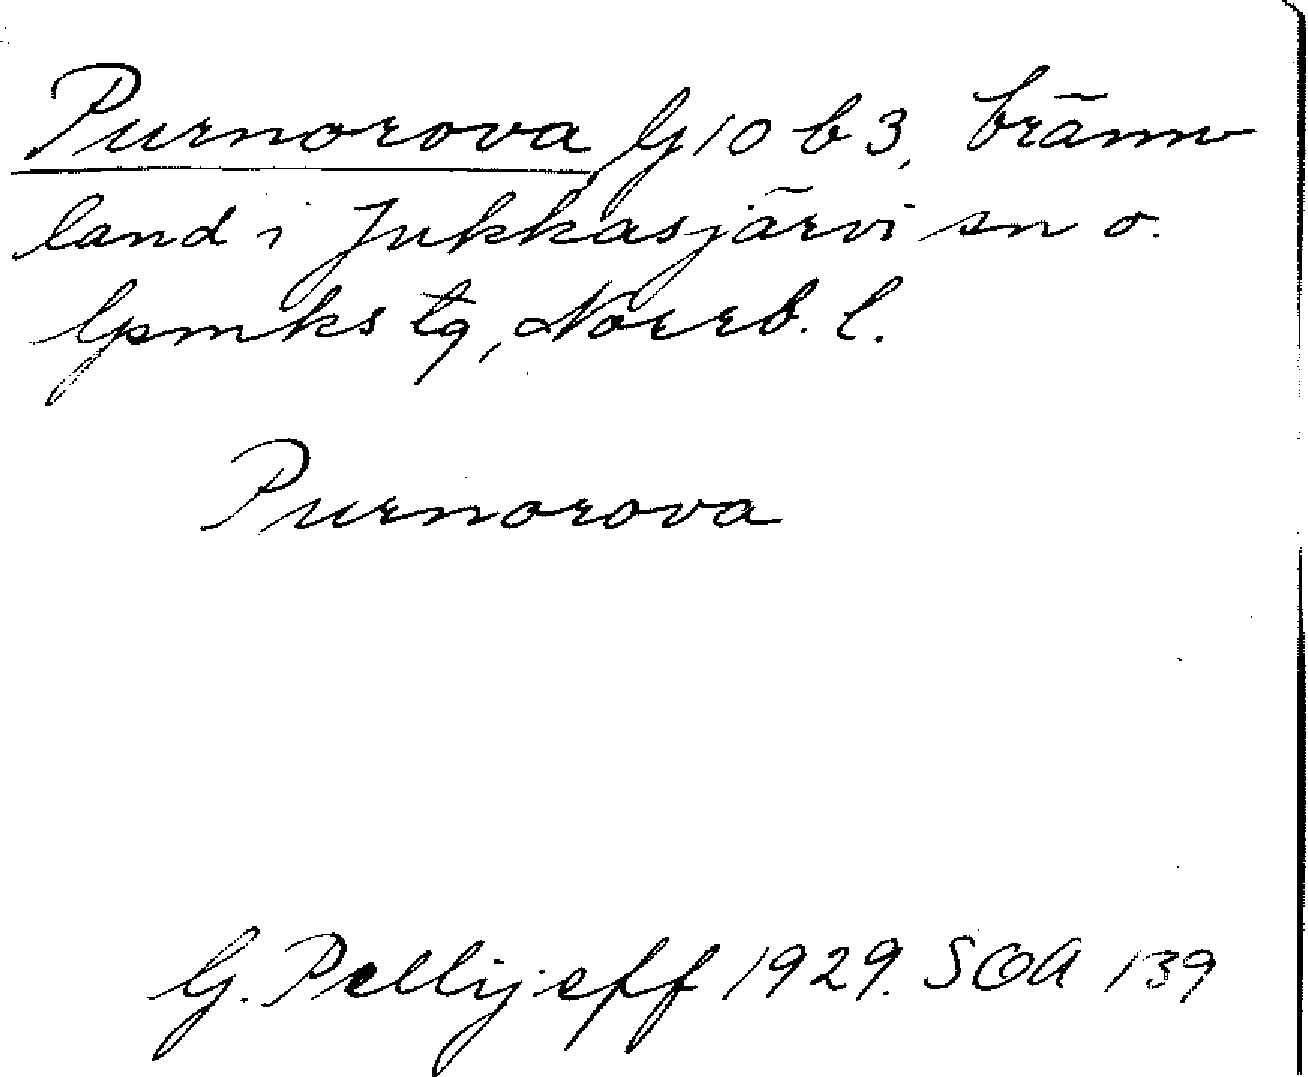 Purnorova G 10 b 3, bränn
land i Jukkasjärvi sn o.
lpmks tg, Norrb. l.
Purnorova
G. Pellijeff 1929. SOA 139